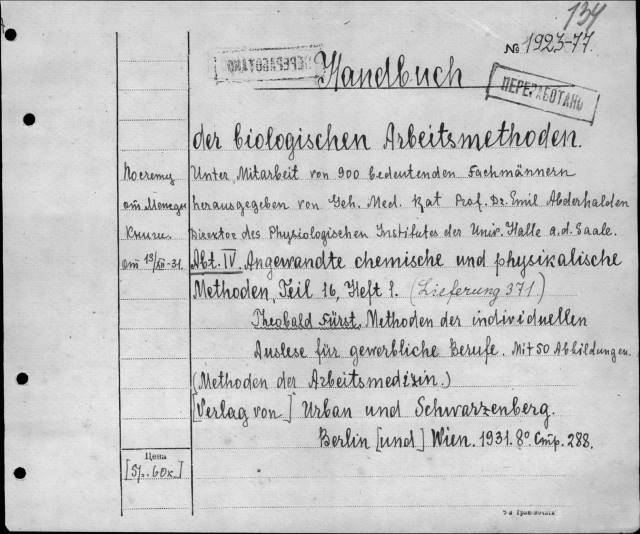 134
№ 1923-77.
ПЕРЕРАБОТАНО
Handbuch
ПЕРЕРАБОТАНЬ
der biologischen Arbeitsmethoden.
Unter Mitarbeit von 900 bedeutenden Fachmännern
herausgegeben von Geh. Med. Rat Prof. Dr. Emil Abderhalden
Direktor des Physiologischen Institutes der Univ. Halle a.d. Saale.
Abt. IV. Angewandte chemische und physikalische
Methoden, Teil 16, Heft 1. (Lieferung 371)
Theobald Fürst. Methoden der individuellen
Auslese für gewerbliche Berufe. Mit 50 Abbildungen.
(Methoden der Arbeitsmedizin.)
[Verlag von] Urban und Schwarzenberg.
Berlin [und] Wien. 1931. 8º. Стр. 288.
По счету
от Межд.
Книги.
от 13/XII-31.
Цена